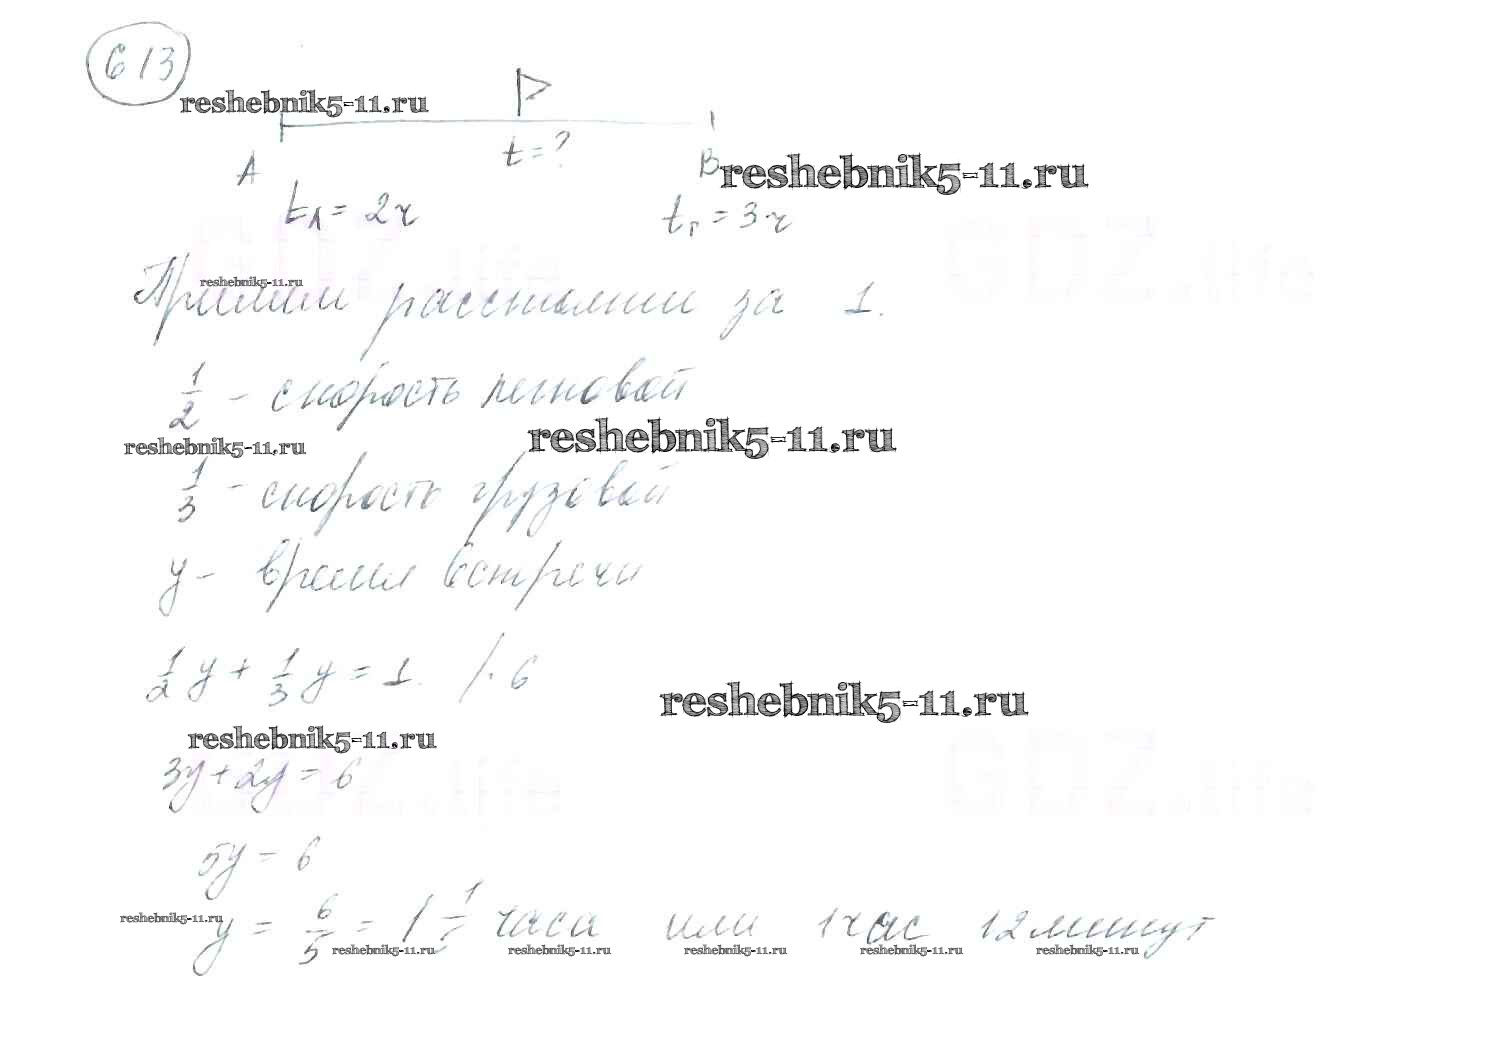 613
reshebnik5-11.ru
t = ?
A
B reshebnik5-11.ru
tл = 2ч
tг = 3ч
GDZ.life GDZ.life
reshebnik5-11.ru
Примем расстоянии за 1.
1/2 - скорость легковой
reshebnik5-11.ru reshebnik5-11.ru
1/3 - скорость грузовой
y - время встречи
1/2 y + 1/3 y = 1. / · 6
reshebnik5-11.ru
reshebnik5-11.ru
GDZ.life GDZ.life
3y + 2y = 6
5y = 6
reshebnik5-11.ru
y = 6/5 = 1 1/5 часа или 1 час 12 минут
reshebnik5-11.ru reshebnik5-11.ru reshebnik5-11.ru reshebnik5-11.ru reshebnik5-11.ru